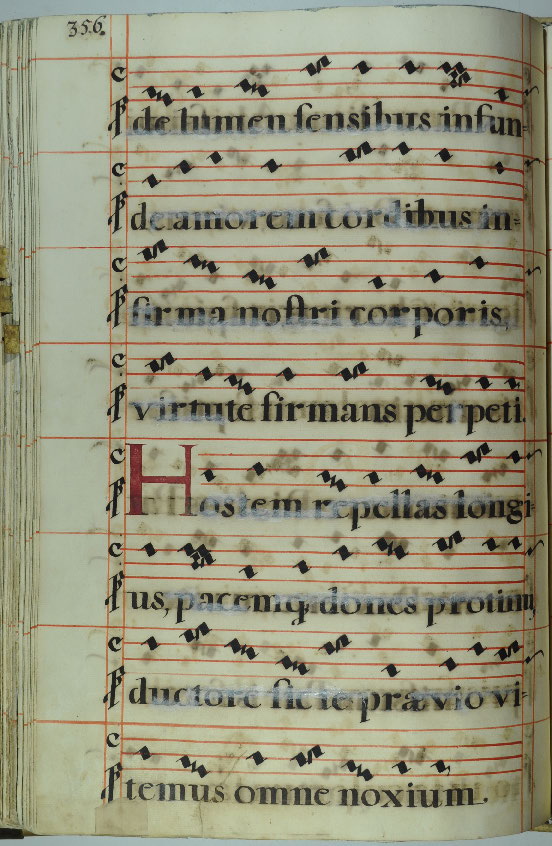 356.
de lumen sensibus infun=
de amorem cordibus in=
firma nostri corporis,
virtute firmans perpeti.
Hostem repellas longi
us, pacemq; dones protinus
ductore sic te prævio vi=
temus omne noxium.